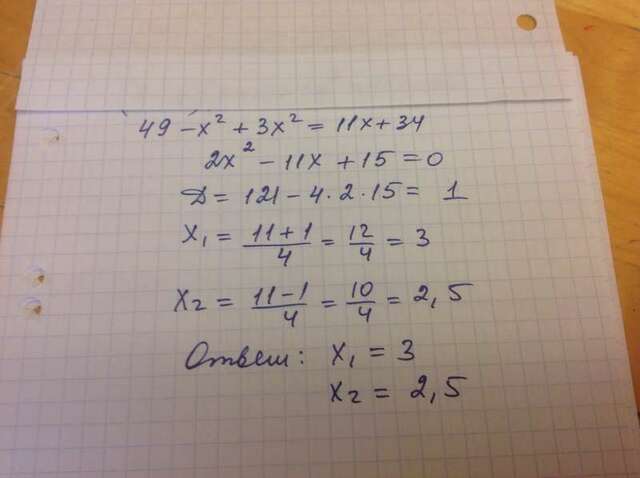 49 - x² + 3x² = 11x + 34
2x² - 11x + 15 = 0
D = 121 - 4 · 2 · 15 = 1
x₁ = (11 + 1)/4 = 12/4 = 3
x₂ = (11 - 1)/4 = 10/4 = 2,5
Ответ: x₁ = 3
x₂ = 2,5